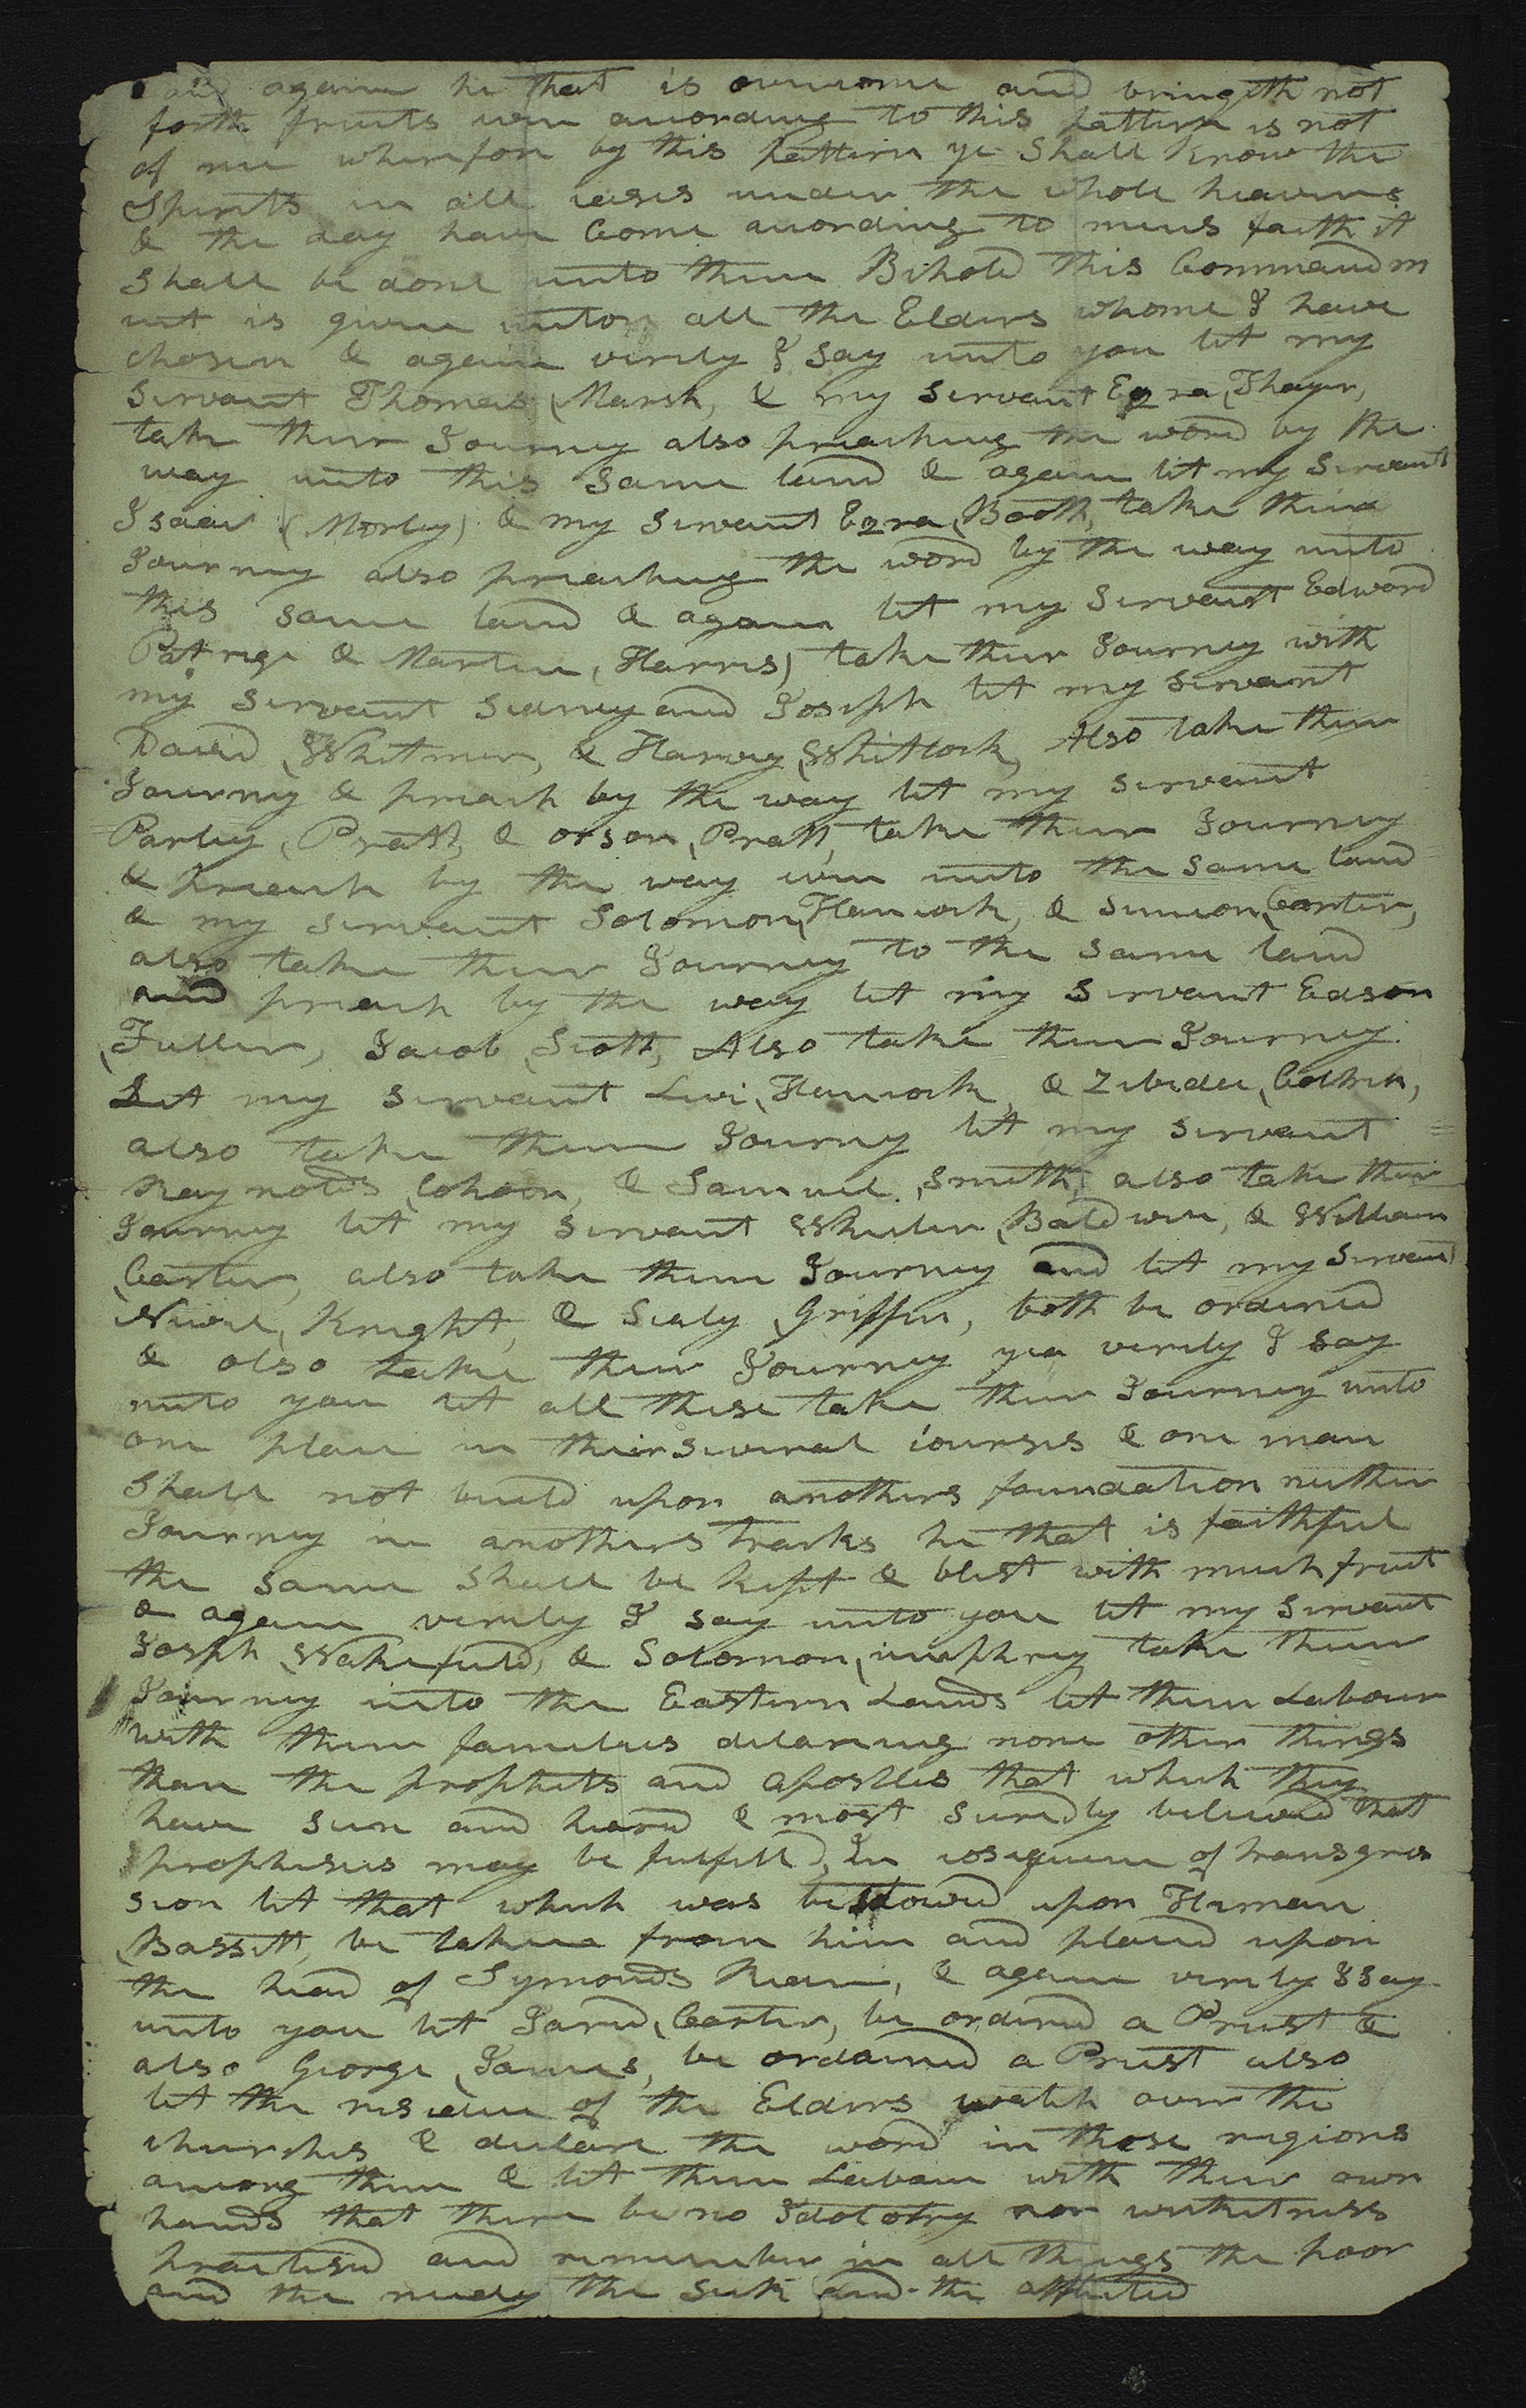 and again he that is overcome and bringeth not
forth fruits even acording to this pattern is not
of me wherefore by this pattern ye Shall Know the
Spirits in all cases under the whole heavens
& the day have Come acording to mens faith it
Shall be done unto them Behold this Commandm
ent is given unton all the Elders whome I have
chosen & again verily I Say unto you let my
Servant Thomas (Marsh) & my Servant Ezra (Thayer)
take their Journey also preaching the word by the
way unto this Same land & again let my Servant
Isaac (Morley) & my Servant Ezra (Booth) take their
Journey also preaching the word by the way unto
this same land & again let my Servant Edward
Patrige & Martin (Harris) take their Journey with
my Servant Sidney and Joseph let my Servant
David (Whitmer) & Harvey (Whitlock) Also take their
Journey & preach by the way let my Servant
Parley (Pratt) & orson (Pratt) take their Journey
& preach by the way even unto the Same land
& my Servant Solomon (Hancock) & Simeon (Carter)
also take their Journey to the Same land
and preach by the way let my Servant Edson
(Fuller) Jacob (Scott) Also take their Journey.
Let my Servant Levi (Hancock) & Zebidee (Coltrin)
also take their Journy let my Servant
Raynolds (Cohoon) & Samuel (Smith) also take their
Journey let my Servant Wheeler (Baldwin) & William
(Carter) also take their Journey and let my Servant
Newel (Knight) & Sealy (Griffin) both be ordined
& also take their Journey yea verily I say
unto you let all these take their Journey unto
one place in their Several courses & one man
Shall not build upon anothers foundation neither
Journey in anothers tracks he that is faithful
the same Shall be kept & blest with much fruit
& again verily I say unto you let my Servant
Joseph (Wakefield) & Solomon (umphrey take their
Journey into the Eastern Lands let them Labour
with their families declareing none other things
than the prophets and apostles that which they
have seen and heard & most suredly believed that
prophisies may be fulfilled, In cosequence of transgres
sion let that which was bestowed upon Heman
(Bassett) be taken from him and placed upon
the head of Symonds Rider, & again verily I Say
unto you let Jared (Carter) be ordined a Priest &
also George (James) be ordained a Priest also
let the residue of the Elders watch over the
churches & declare the word in these regions
among them & let them Labour with their own
hands that there be no Idolotry nor wickitness
practised and remember in all things the poor
and the needy the Sick and the afflicted